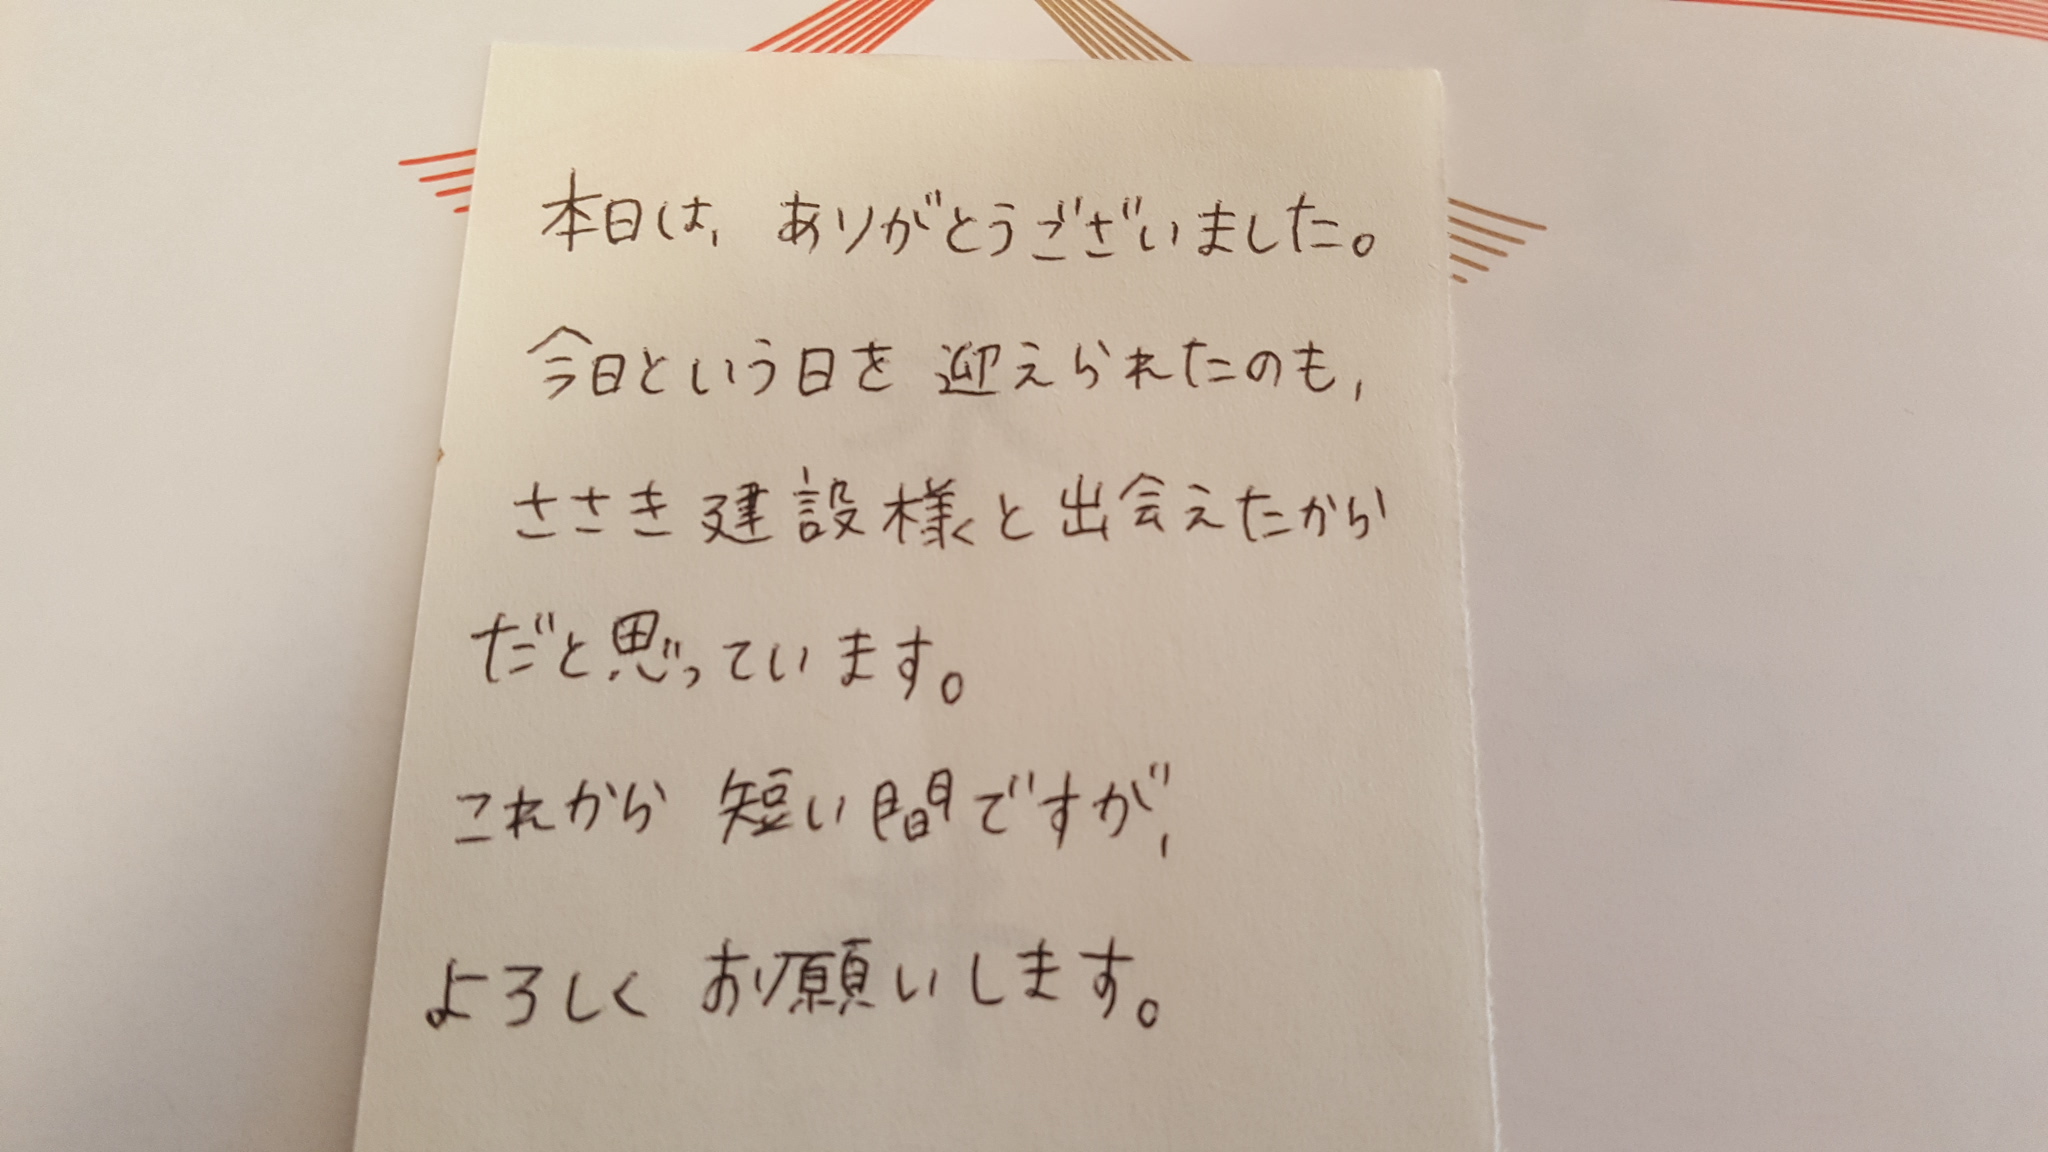 本日は、ありがとうございました。
今日という日を迎えられたのも、
ささき建設様と出会えたから
だと思っています。
これから短い間ですが、
よろしくお願いします。